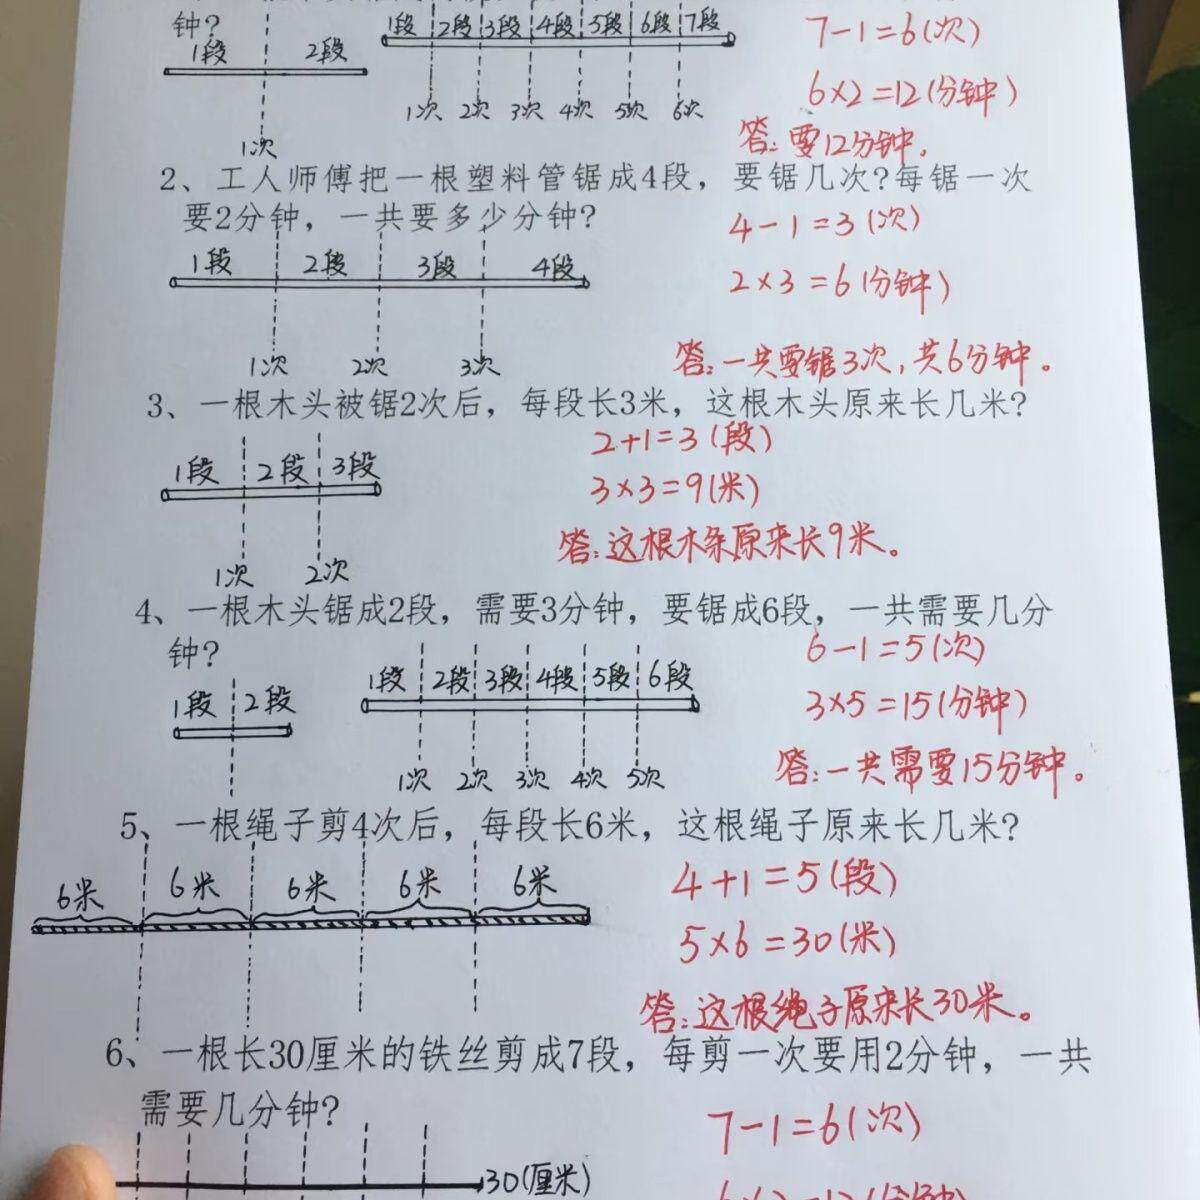 钟?
1段 2段
1段 2段 3段 4段 5段 6段 7段
1次 2次 3次 4次 5次 6次
1次
7-1=6(次)
6×2=12(分钟)
答:要12分钟.
2、工人师傅把一根塑料管锯成4段，要锯几次?每锯一次
要2分钟，一共要多少分钟?
1段 2段 3段 4段
1次 2次 3次
4-1=3(次)
2×3=6(分钟)
答:一共要锯3次,共6分钟。
3、一根木头被锯2次后，每段长3米，这根木头原来长几米?
1段 2段 3段
1次 2次
2+1=3(段)
3×3=9(米)
答:这根木条原来长9米。
4、一根木头锯成2段，需要3分钟，要锯成6段，一共需要几分
钟?
1段 2段
1段 2段 3段 4段 5段 6段
1次 2次 3次 4次 5次
6-1=5(次)
3×5=15(分钟)
答:一共需要15分钟。
5、一根绳子剪4次后，每段长6米，这根绳子原来长几米?
6米 6米 6米 6米 6米
4+1=5(段)
5×6=30(米)
答:这根绳子原来长30米。
6、一根长30厘米的铁丝剪成7段，每剪一次要用2分钟，一共
需要几分钟?
30(厘米)
7-1=6(次)
6×2=12(分钟)